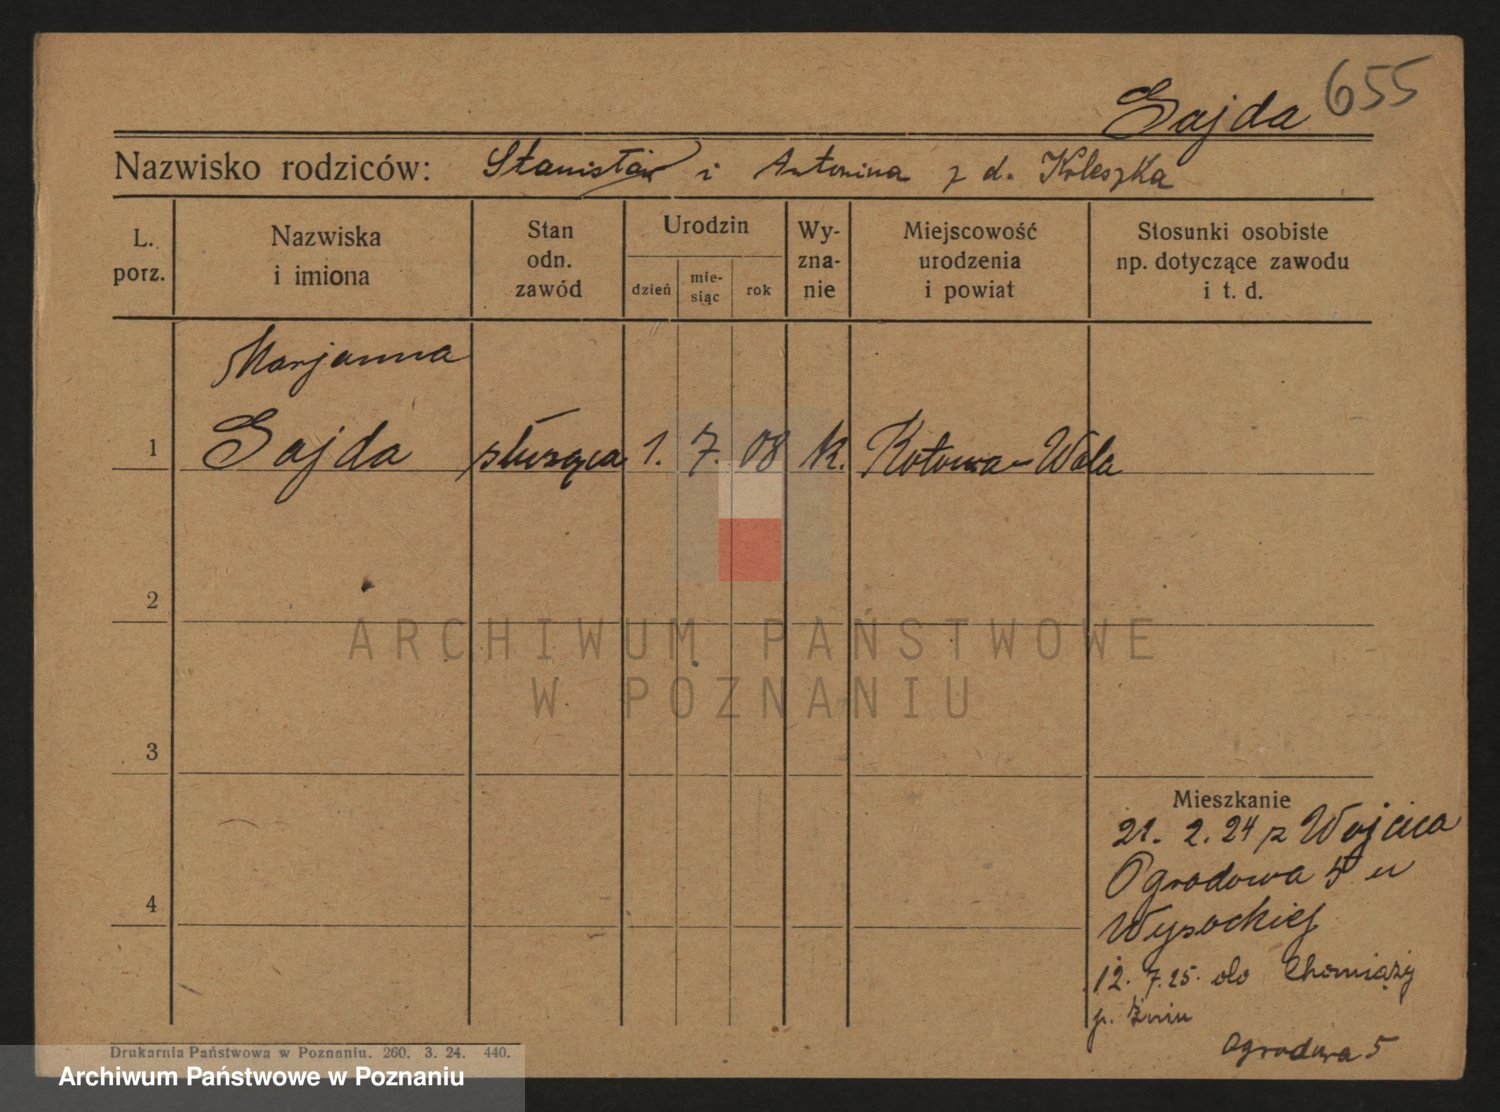 655
Gajda
Nazwisko rodziców: Stanisław i Antonina z d. Koleszka
L. porz.
Nazwiska i imiona
Stan odn. zawód
Urodzin
dzień
mie-siąc
rok
Wy-zna-nie
Miejscowość urodzenia i powiat
Stosunki osobiste np. dotyczące zawodu i t. d.
Marjanna
1 Gajda służąca 1. 7. 08 k. Kotowa-Wola
2
ARCHIWUM PAŃSTWOWE
W POZNANIU
3
Mieszkanie
21. 2. 24 z Wójcica
Ogrodowa 5 u
4
Wysockiej
12. 7. 25. do Chomiąży
p. Żnin
Ogrodowa 5
Drukarnia Państwowa w Poznaniu. 260. 3. 24. 440.
Archiwum Państwowe w Poznaniu